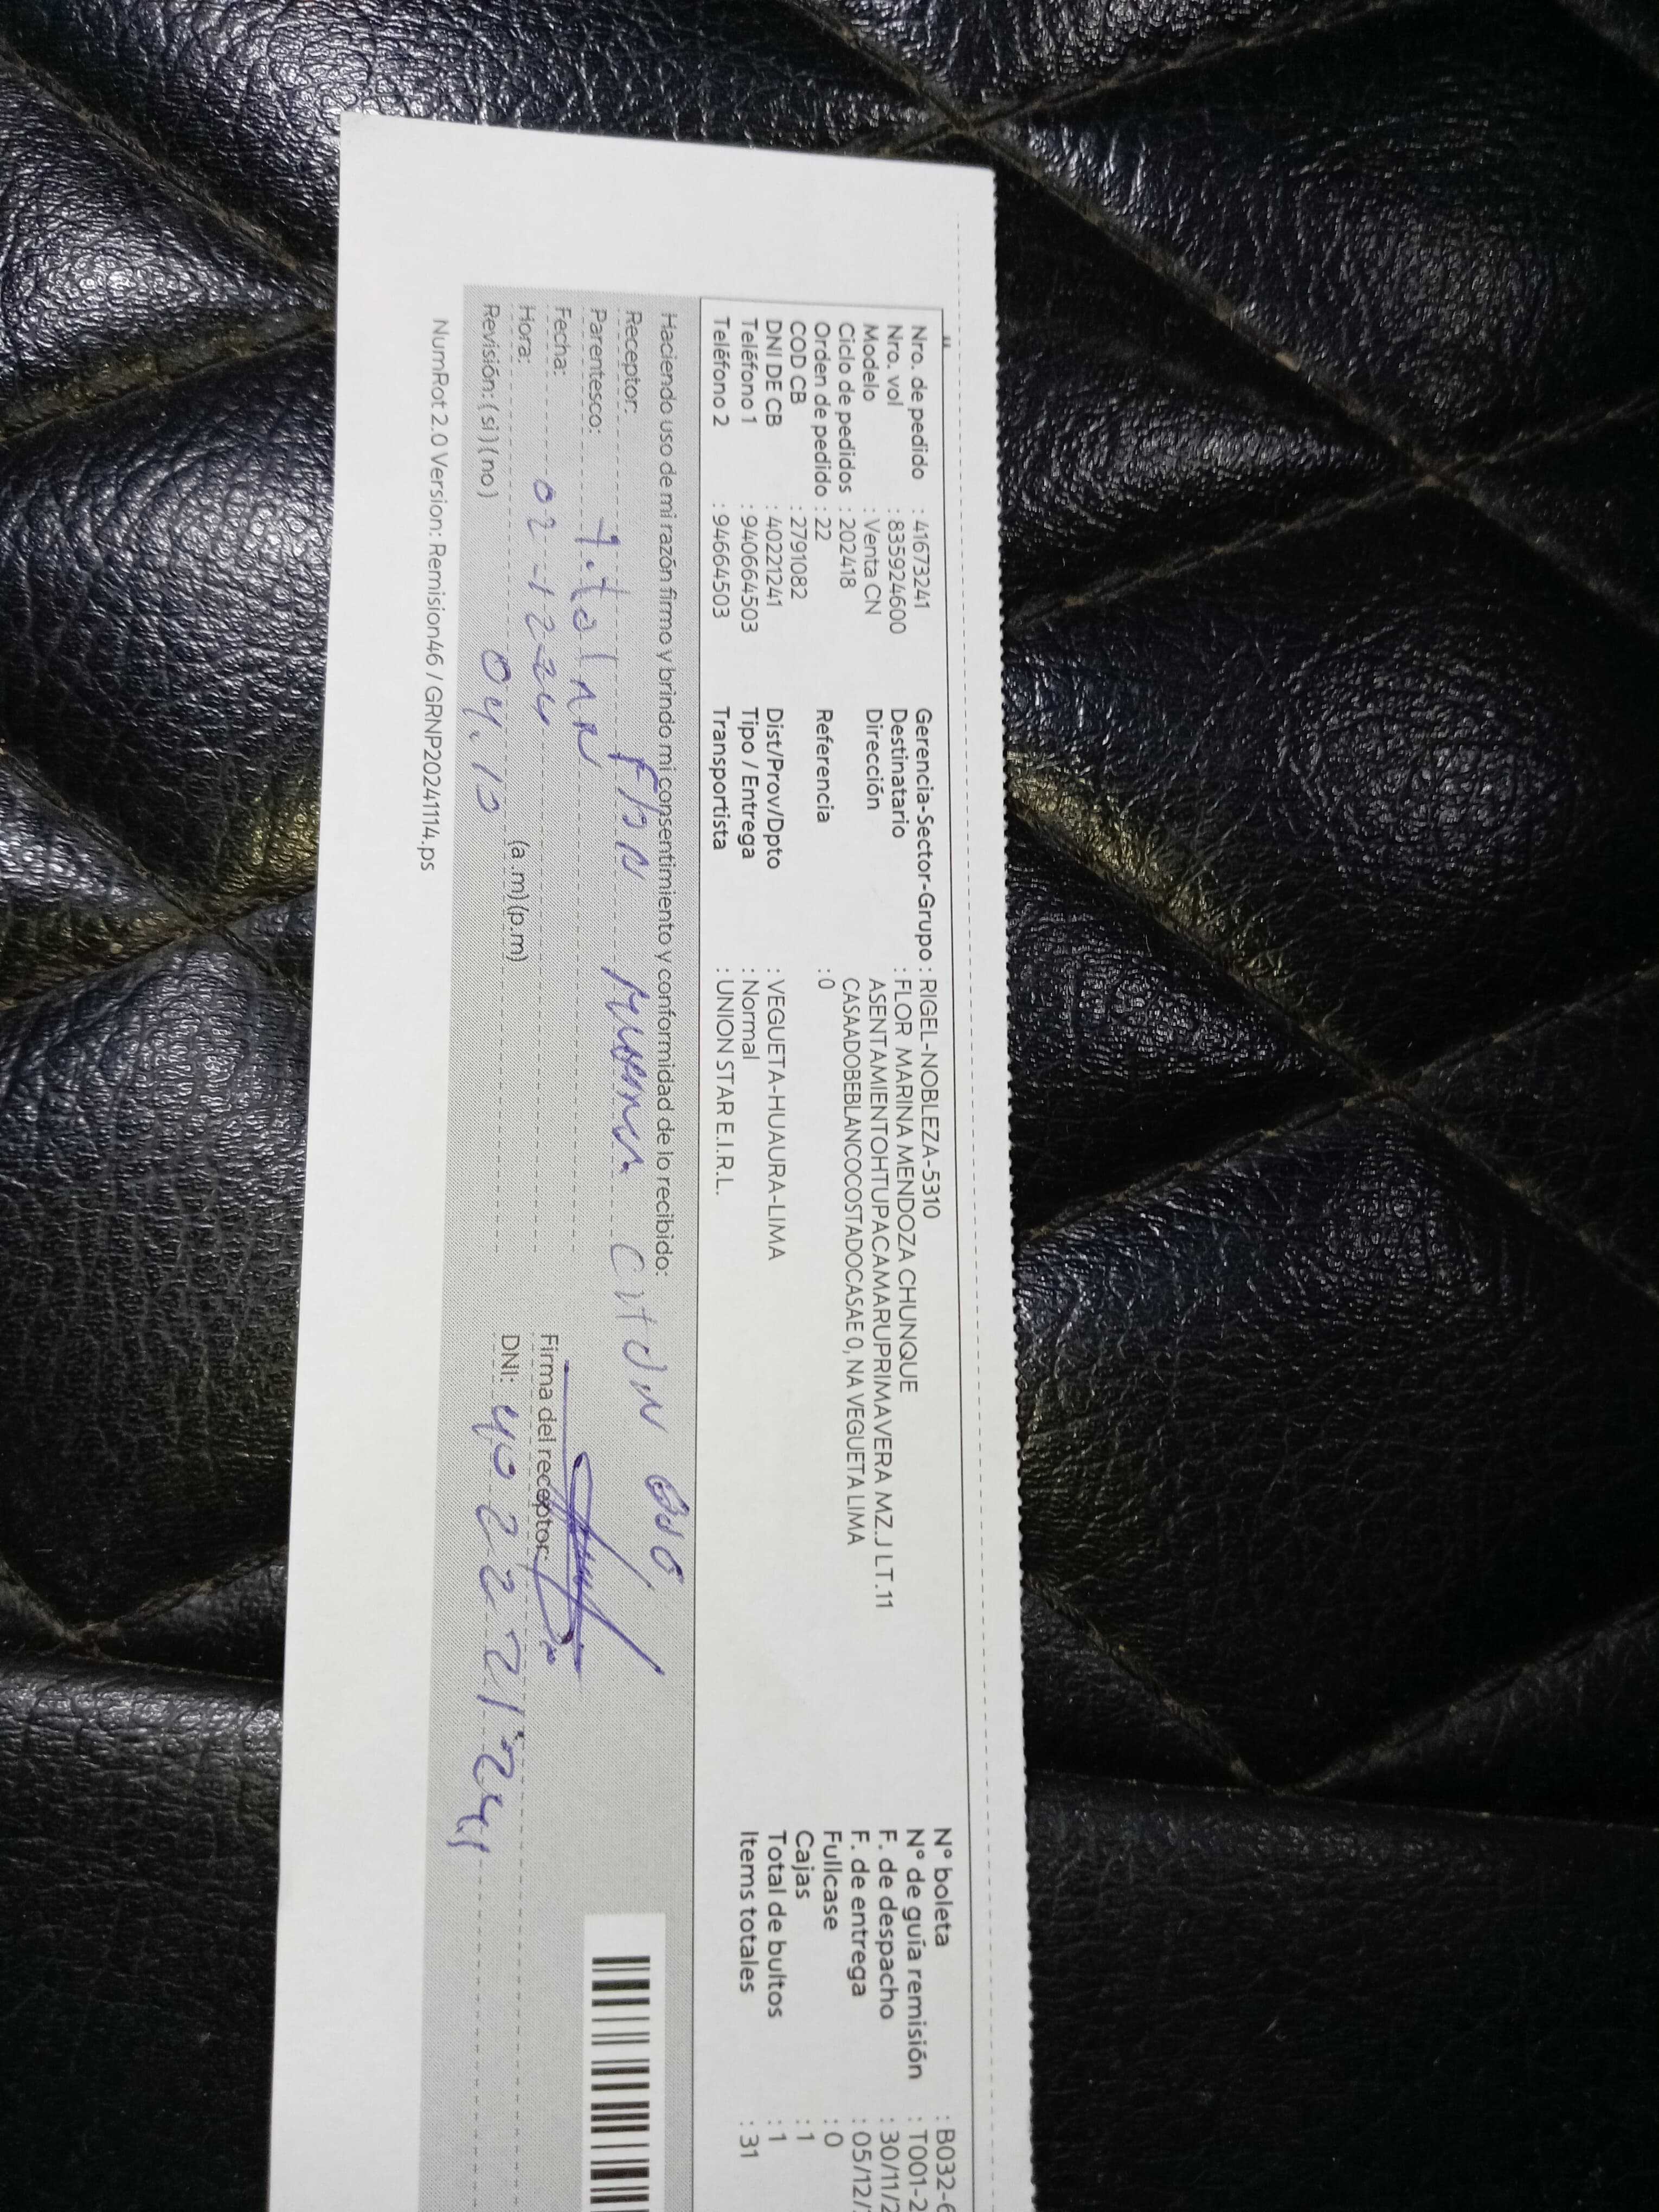 Nro. de pedido : 41673241
Nro. vol : 835924600
Modelo : Venta CN
Ciclo de pedidos : 202418
Orden de pedido : 22
COD CB : 2791082
DNI DE CB : 40221241
Teléfono 1 : 940664503
Teléfono 2 : 94664503
Gerencia-Sector-Grupo : RIGEL-NOBLEZA-5310
Destinatario : FLOR MARINA MENDOZA CHUNQUE
Dirección ASENTAMIENTOHTUPACAMARUPRIMAVERA MZ.J LT.11
CASAADOBEBLANCOCOSTADOCASAE 0, NA VEGUETA LIMA
Referencia : 0
Dist/Prov/Dpto : VEGUETA-HUAURA-LIMA
Tipo / Entrega : Normal
Transportista : UNION STAR E.I.R.L.
N° boleta : B032-6
N° de guía remisión : T001-2
F. de despacho : 30/11/2
F. de entrega : 05/12/
Fullcase : 0
Cajas : 1
Total de bultos : 1
Items totales : 31
Haciendo uso de mi razón firmo y brindo mi consentimiento y conformidad de lo recibido:
Receptor: Flor
Parentesco: titular
Fecha: 02-12-24
Hora: 04.10 (a.m) (p.m)
Revisión: (si) (no)
Firma del receptor:
DNI: 40221241
NumRot 2.0 Version: Remision46 / GRNP20241114.ps